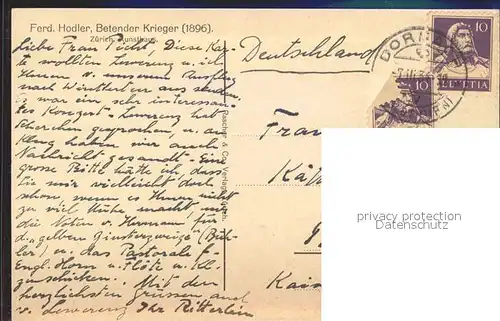 Ferd. Hodler, Betender Krieger (1896).
Zürich, Kunsthaus.
Liebe Frau Pecht, Diese Kar-
te wollten Lewerenz u. ich
Ihnen v. unserem Ausflug
nach Winterthur aus senden.
Es war ein sehr interessan-
tes Konzert. Lewerenz hat
Scherchen gesprochen, u. an
Klug haben wir auch
Nachricht gesandt. Eine
grosse Bitte hätte ich, dass
Sie mir vielleicht doch
schon, wenn es Ihnen nicht
zu viel Mühe macht, mir
die Noten v. Hermann für
d. "gelben Ginsterzweige"
u. das Pastorale f.
Engl. Horn u. Flöte u. Kl.
zuschicken. Mit den
herzlichsten Grüssen auch
v. Lewerenz Ihr Ritterlein
Rascher & Co. Verlag
Deutschland
Frau
Kais
10
HELVETIA
10
privacy protection
Datenschutz